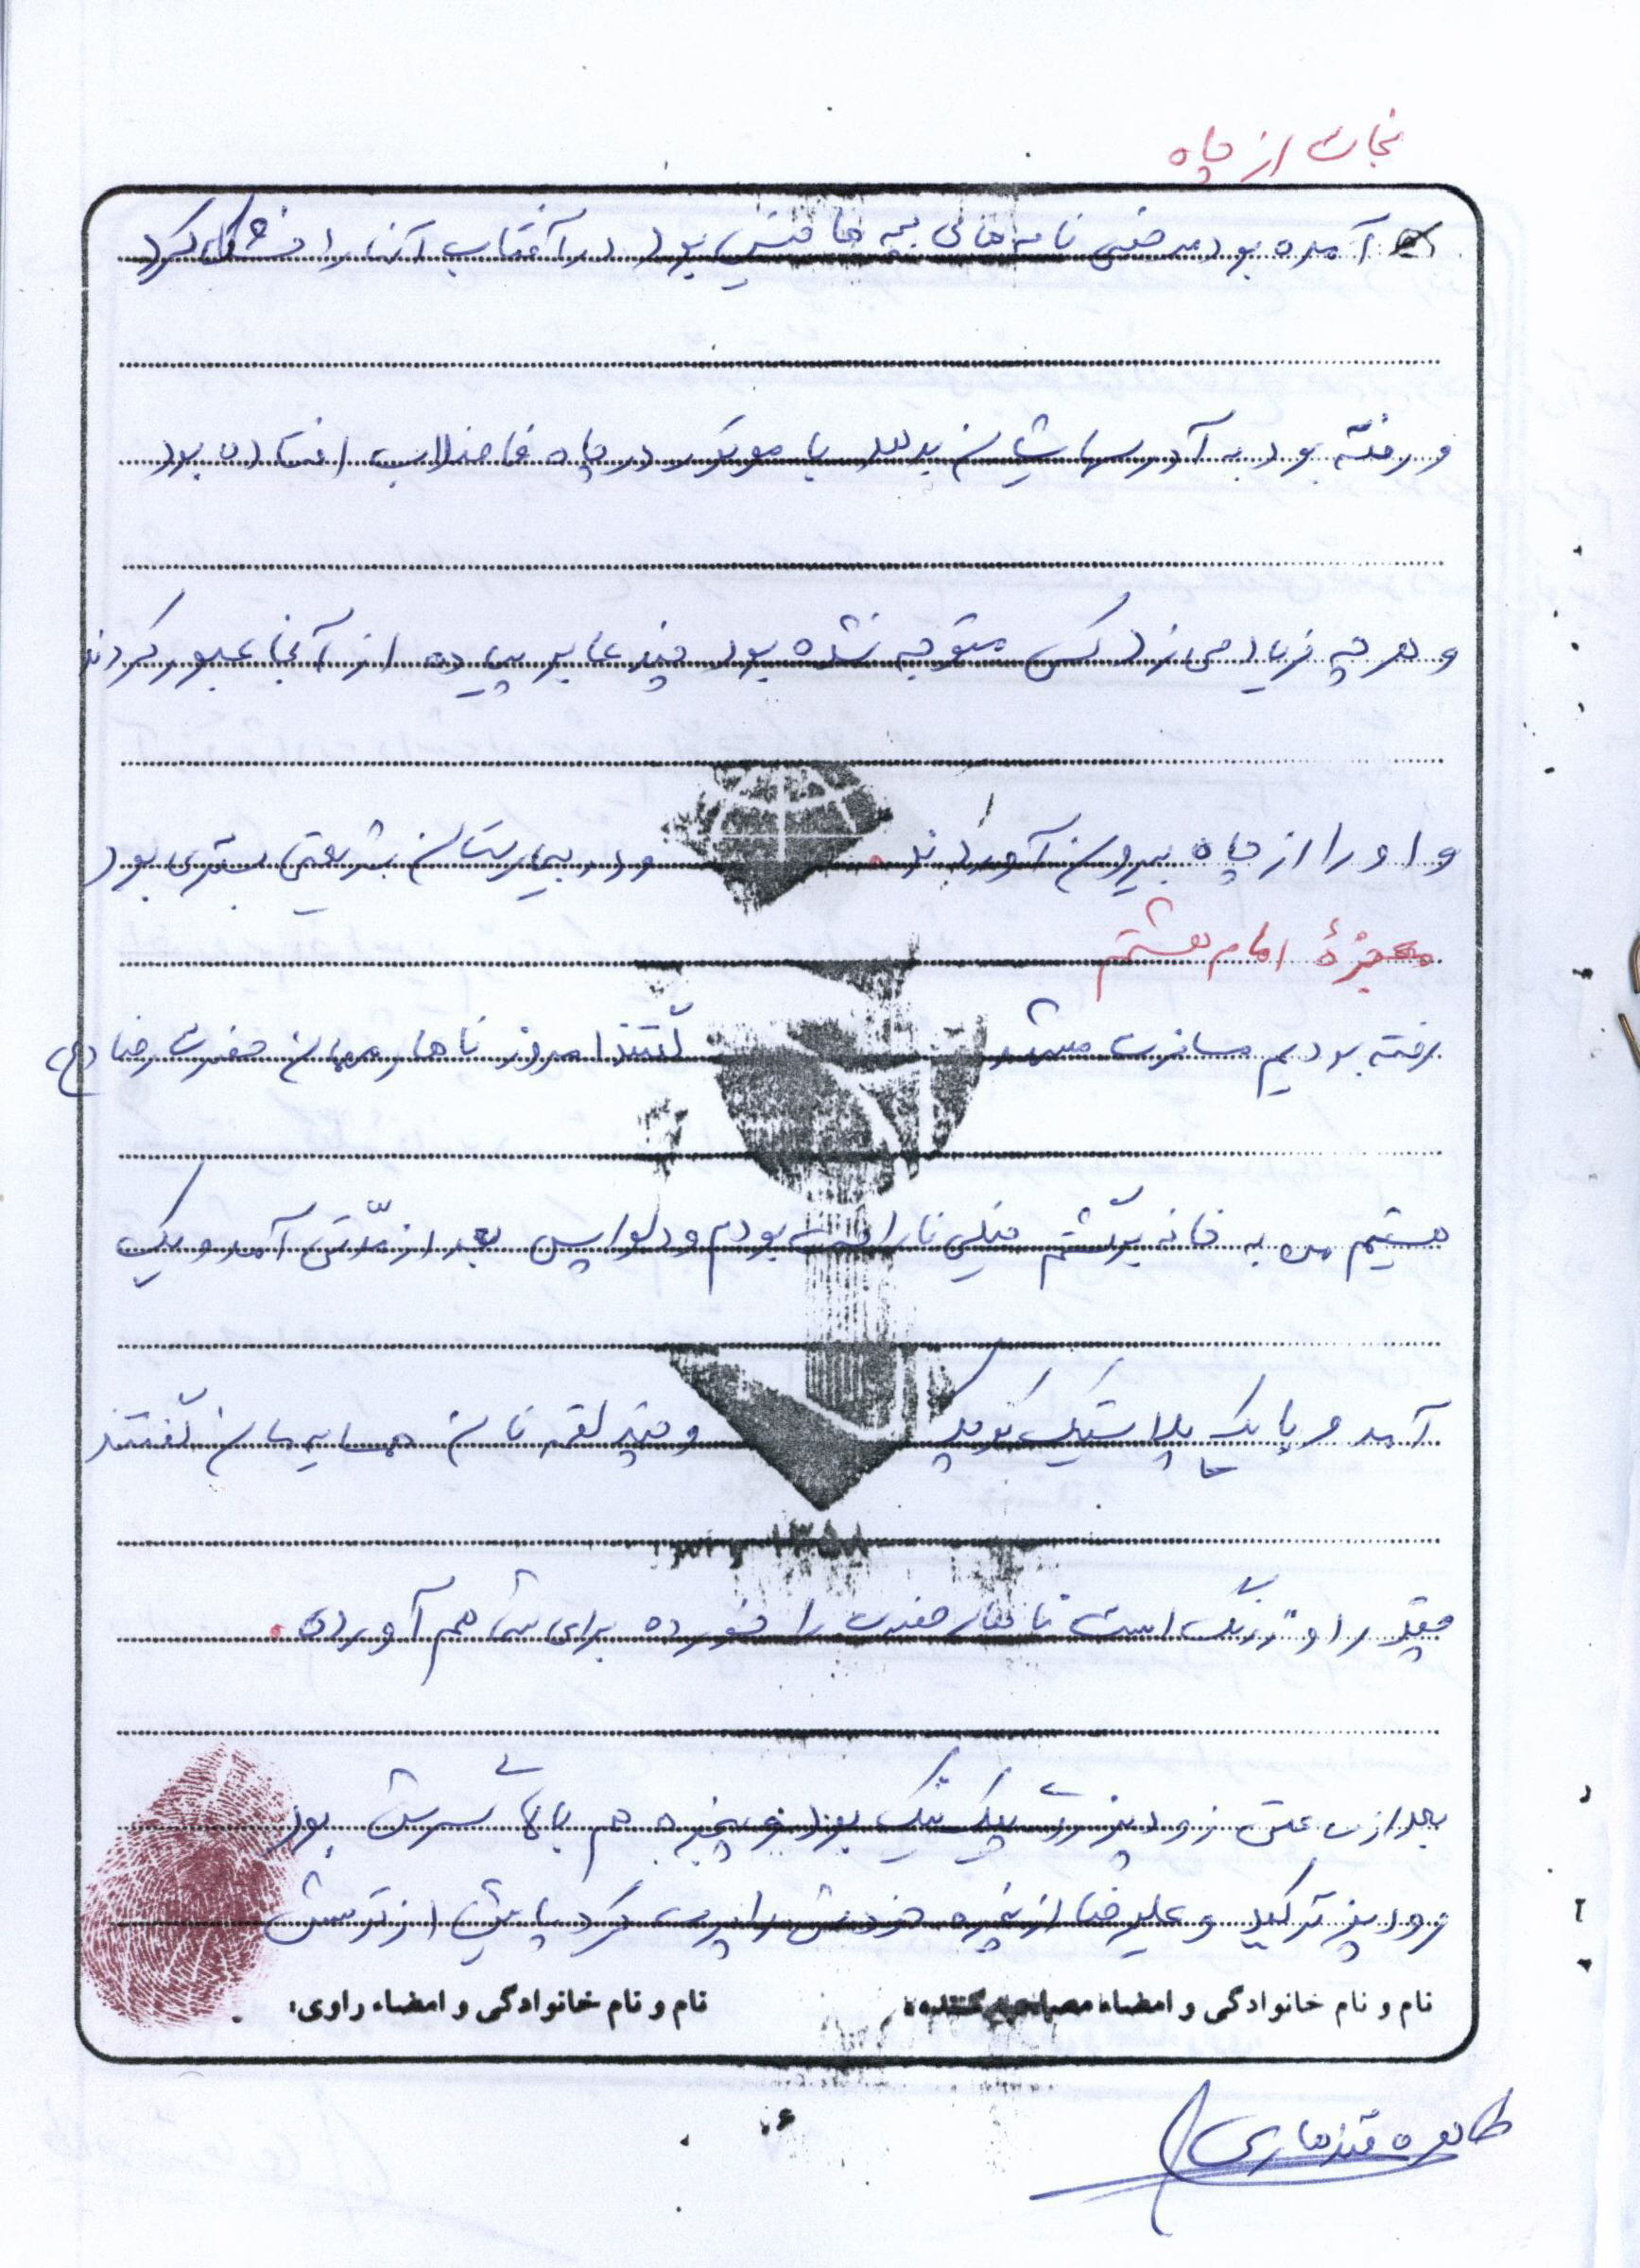 نجات از چاه
آمده بود مرخصی نامه‌های بچه ها خیس بود در آفتاب آنها را خشک کرد
و رفته بود به آدرسهایشان بدهد با موتور در چاه فاضلاب افتاده بود
و هر چه فریاد می زد کسی متوجه نشده بود چند عابر پیاده از آنجا عبور کردند
و او را از چاه بیرون آوردند. و در بیمارستان شریعتی بستری بود
معجزۀ امام هشتم
رفته بودیم مسافرت مشهد گفتند امروز ناهار مهمان حضرت رضا (ع)
هستیم من به خانه برگشتم خیلی ناراحت بودم و دلواپس بعد از مدّتی آمد و یک
آمد و با یک پلاستیک کوچک و چند لقمه نان همسایه مان گفتند
چقدر او زرنگ است ناهار حضرت را خورده برای شما هم آورده.
بعد از ساعتی زودپز روی پیک نیک بود و پنجره هم بالای سرش بود
زودپز ترکید و علیرضا از پنجره خودش را پرت کرد پایین از ترسش
نام و نام خانوادگی و امضاء مصاحبه کننده:
نام و نام خانوادگی و امضاء راوی:
طاهره قندهاری
۶
۱۳۵۸